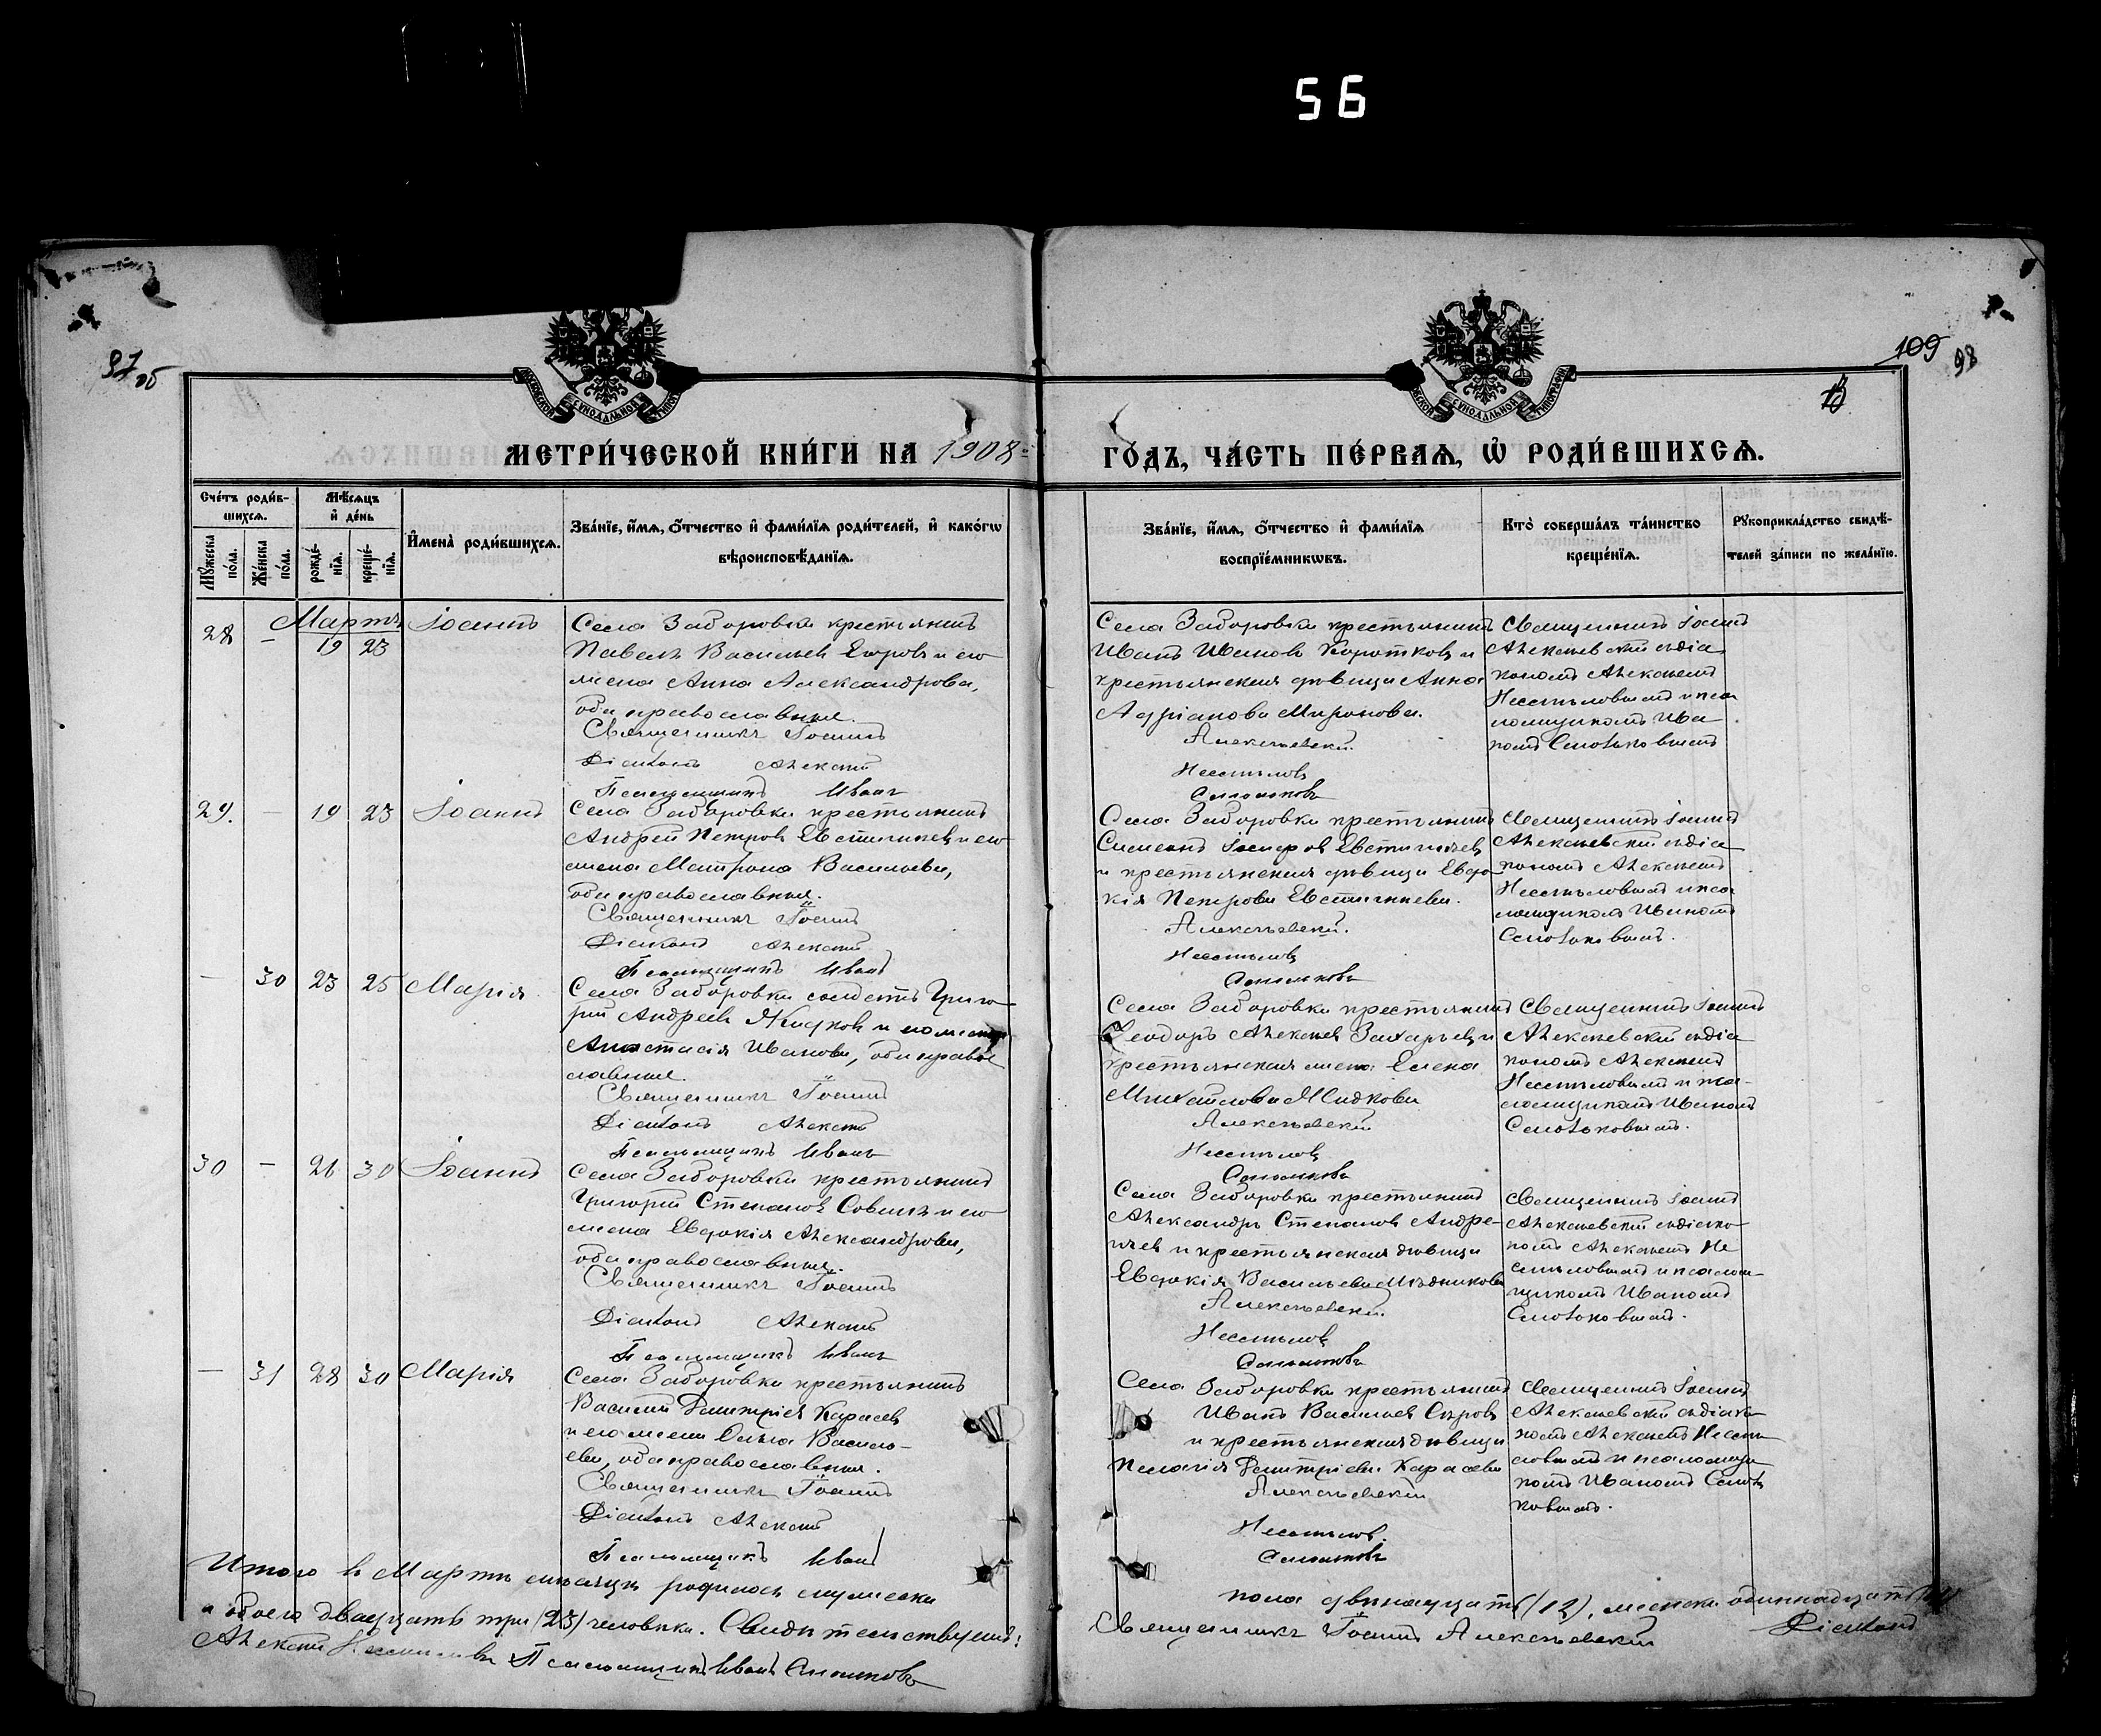 56
97 об
109
98
13
МОСКОВСКОЙ СѴНОДАЛЬНОЙ ТИПОГРАФІИ
МОСКОВСКОЙ СѴНОДАЛЬНОЙ ТИПОГРАФІИ
МЕТРИ́ЧЕСКОЙ КНИ́ГИ НА 1908
ГО́ДЪ, ЧА́СТЬ ПЕ́РВАѦ, Ѡ҆ РОДИ́ВШИХСѦ.
Сче́тъ роди́в-
шихсѧ.
Мѣ́сѧцъ
и҆ де́нь
Мꙋ́жеска
по́ла.
Же́нска
по́ла.
рожде́-
нїѧ.
креще́-
нїѧ.
И҆мена̀ роди́вшихсѧ.
Зва́нїе, и҆́мѧ, ѻ҆́тчество и҆ фами́лїѧ роди́телей, и҆ како́гѡ
вѣроисповѣ́данїѧ.
Зва́нїе, и҆́мѧ, ѻ҆́тчество и҆ фами́лїѧ
воспрїе́мникѡвъ.
Кто̀ соверша́лъ та́инство
креще́нїѧ.
Рꙋкоприкла́дство свидѣ́-
телей за́писи по жела́нїю.
Мартъ
28 – 19 23 Іоаннъ
Села Заборовки крестьянинъ
Павелъ Васильев Егоров и его
жена Анна Александрова,
оба православные.
Священникъ Іоаннъ
Діаконъ Алексій
Псаломщикъ Иванъ
Села Заборовки крестьянинъ
Иванъ Иванов Коротков и
крестьянская дѣвица Анна
Адріанова Миронова.
Алексѣевскій.
Несмѣлов
Священникъ Іоаннъ
Алексѣевскій съ діа
кономъ Алексѣемъ
Несмѣловымъ и пса
ломщикомъ Ива
номъ
29. – 19 23 Іоаннъ
Села Заборовки крестьянинъ
Андрей Петров Евстигнеев и его
жена Матрона Васильева,
оба православные.
Священникъ Іоаннъ
Діаконъ Алексій
Псаломщикъ Иванъ
Села Заборовки крестьянинъ
Симеонъ Іосифов Евстигнеев
и крестьянская дѣвица Евдо
кія Петрова Евстигнеева.
Алексѣевскій.
Несмѣлов
Священникъ Іоаннъ
Алексѣевскій съ діа
кономъ Алексѣемъ
Несмѣловымъ и пса
ломщикомъ Иваномъ
– 30 23 25 Марія
Села Заборовки солдатъ Григо
рій Андреев Жидков и его жена
Анастасія Иванова, оба право
славные.
Священникъ Іоаннъ
Діаконъ Алексій
Псаломщикъ Иванъ
Села Заборовки крестьянинъ
Ѳеодоръ Алексѣев Захарьев и
крестьянская жена Елена
Михайлова Жидкова
Алексѣевскій
Несмѣлов
Священникъ Іоаннъ
Алексѣевскій съ діа
кономъ Алексѣемъ
Несмѣловымъ и пса-
ломщикомъ Иваномъ
30 – 26 30 Іоаннъ
Села Заборовки крестьянинъ
Григорій Степанов Совинъ и его
жена Евдокія Александрова,
оба православные.
Священникъ Іоаннъ
Діаконъ Алексій
Псаломщикъ Иванъ
Села Заборовки крестьянинъ
Александръ Степанов Андре-
ичев и крестьянская дѣвица
Евдокія Васильева Мѣдникова
Алексѣевскій.
Несмѣлов
Священникъ Іоаннъ
Алексѣевскій съ діако
номъ Алексѣемъ Не
смѣловымъ и псалом-
щикомъ Иваномъ
– 31 28 30 Марія
Села Заборовки крестьянинъ
Василій Димитріев Карасев
и его жена Ольга Василь-
ева, оба православные.
Священникъ Іоаннъ
Діаконъ Алексій
Псаломщикъ Иванъ
Села Заборовки крестьянинъ
Иванъ Васильев Сыров
и крестьянская дѣвица
Пелагія Димитріева Карасева
Алексѣевскій
Несмѣлов.
Священникъ Іоаннъ
Алексѣевскій съ діако
номъ Алексѣемъ Несмѣ
ловымъ и псаломщи
комъ Иваномъ
Итого в Мартѣ мѣсяцѣ родилось мужеска
пола двѣнадцать (12), женска одиннадцать (11)
а обоего двадцать три (23) человѣка. Свидѣтельствуемъ:
Священникъ Іоаннъ Алексѣевскій Діаконъ
Алексій Несмѣловъ Псаломщикъ Иванъ